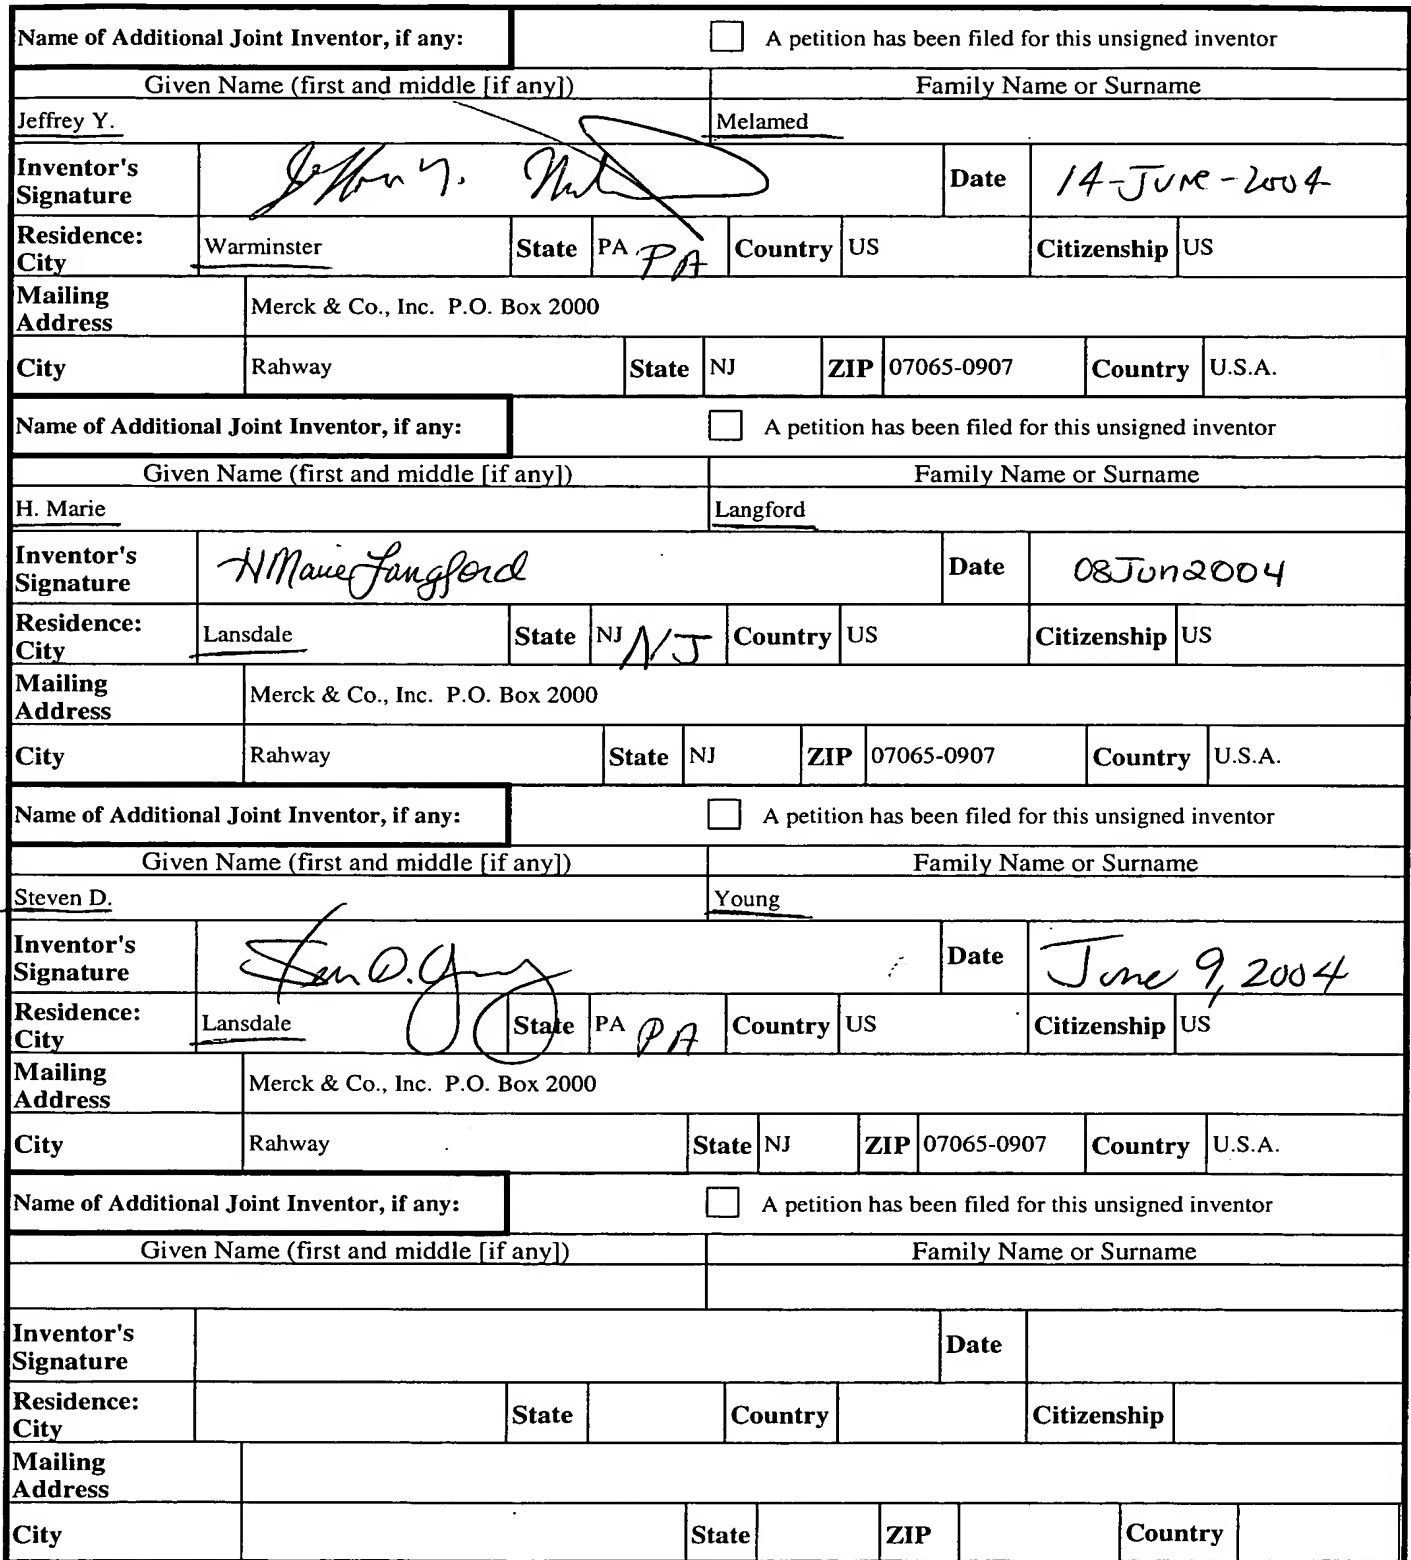 Name of Additional Joint Inventor, if any: A petition has been filed for this unsigned inventor
Given Name (first and middle [if any]) Family Name or Surname
Jeffrey Y. Melamed
Inventor's Signature Date 14-June-2004
Residence: City Warminster State PA PA Country US Citizenship US
Mailing Address Merck & Co., Inc. P.O. Box 2000
City Rahway State NJ ZIP 07065-0907 Country U.S.A.
Name of Additional Joint Inventor, if any: A petition has been filed for this unsigned inventor
Given Name (first and middle [if any]) Family Name or Surname
H. Marie Langford
Inventor's Signature H Marie Langford Date 08Jun2004
Residence: City Lansdale State NJ NJ Country US Citizenship US
Mailing Address Merck & Co., Inc. P.O. Box 2000
City Rahway State NJ ZIP 07065-0907 Country U.S.A.
Name of Additional Joint Inventor, if any: A petition has been filed for this unsigned inventor
Given Name (first and middle [if any]) Family Name or Surname
Steven D. Young
Inventor's Signature Date June 9, 2004
Residence: City Lansdale State PA PA Country US Citizenship US
Mailing Address Merck & Co., Inc. P.O. Box 2000
City Rahway State NJ ZIP 07065-0907 Country U.S.A.
Name of Additional Joint Inventor, if any: A petition has been filed for this unsigned inventor
Given Name (first and middle [if any]) Family Name or Surname
Inventor's Signature Date
Residence: City State Country Citizenship
Mailing Address
City State ZIP Country